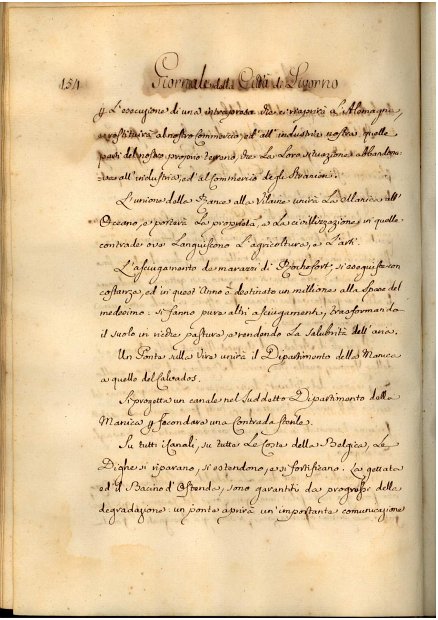 154 Giornale della Città di Livorno
p. L'esecuzione di una intrapresa che ci riaprirà l'Alemagna,
e restituirà al nostro Commercio, ed all'industria nostra quelle
parti del nostro proprio terreno, che la loro situazione abbandona-
ava all'industria, ed al Commercio degli Stranieri.
L'unione della Rance alla Vilaine unirà La Manica all'
Oceano, e porterà La proprietà, e La civilizzazione in quelle
contrade ove Languiscono L'agricoltura, e L'arti.
L'asciugamento de marazzi di Rochefort, si eseguisce con
costanza, ed in quest'Anno è destinato un millione alle spese del
medesimo: si fanno pure altri asciugamenti, trasformando
il suolo in ricche pasture, e rendendo La salubrità dell'aria.
Un Ponte sulla Vire unirà il Dipartimento della Manica
a quello del Calvados.
Si progetta un canale nel suddetto Dipartimento della
Manica p. fecondare una Contrada sterile.
Su tutti i Canali, su tutte Le Coste della Belgica, Le
Dighe si riparano, si estendono, e si fortificano. La gettata
ed il Bacino d'Ostenda, sono garantiti da progressi della
degradazione: un ponte aprirà un'importante comunicazione